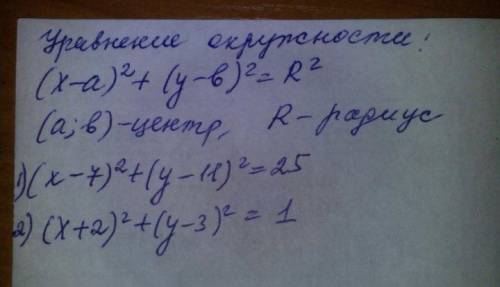 Уравнение окружности:
(x-a)² + (y-в)² = R²
(а;в)-центр, R - радиус
1) (x-7)² + (y-11)² = 25
2) (x+2)² + (y-3)² = 1